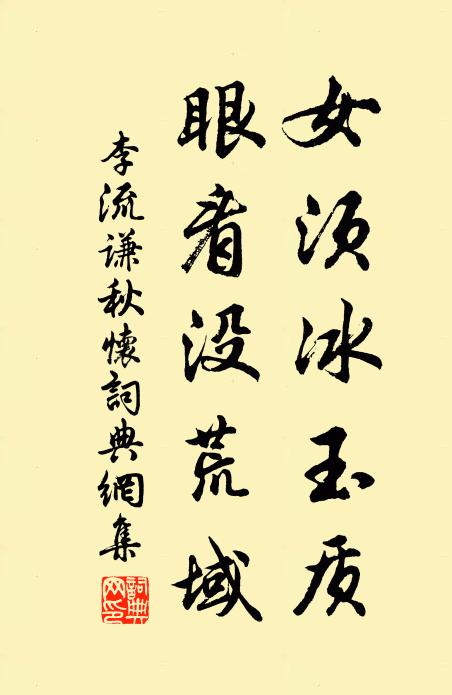 女须冰玉质
眼看没荒域
李流谦秋怀词典网集